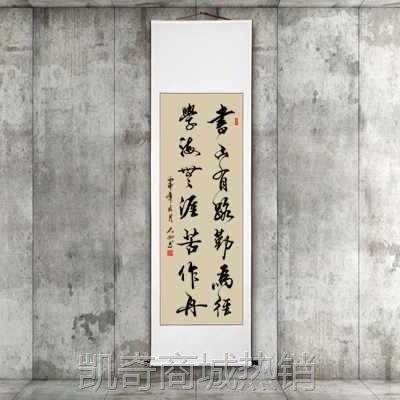 書山有路勤為徑
學海無涯苦作舟
凯奇商城热销